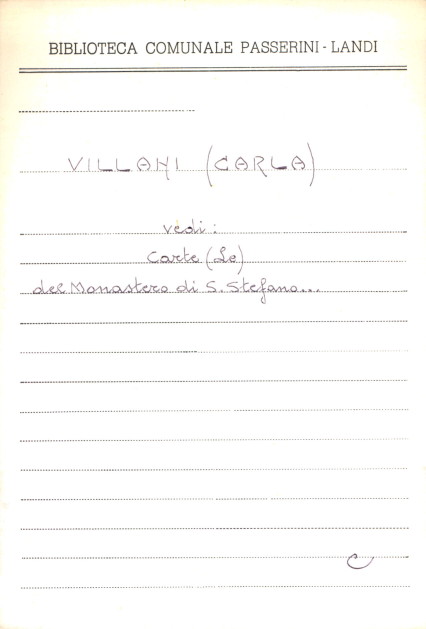 BIBLIOTECA COMUNALE PASSERINI - LANDI
VILLANI (CARLA)
vedi:
Carte (Le)
del Monastero di S. Stefano...
C